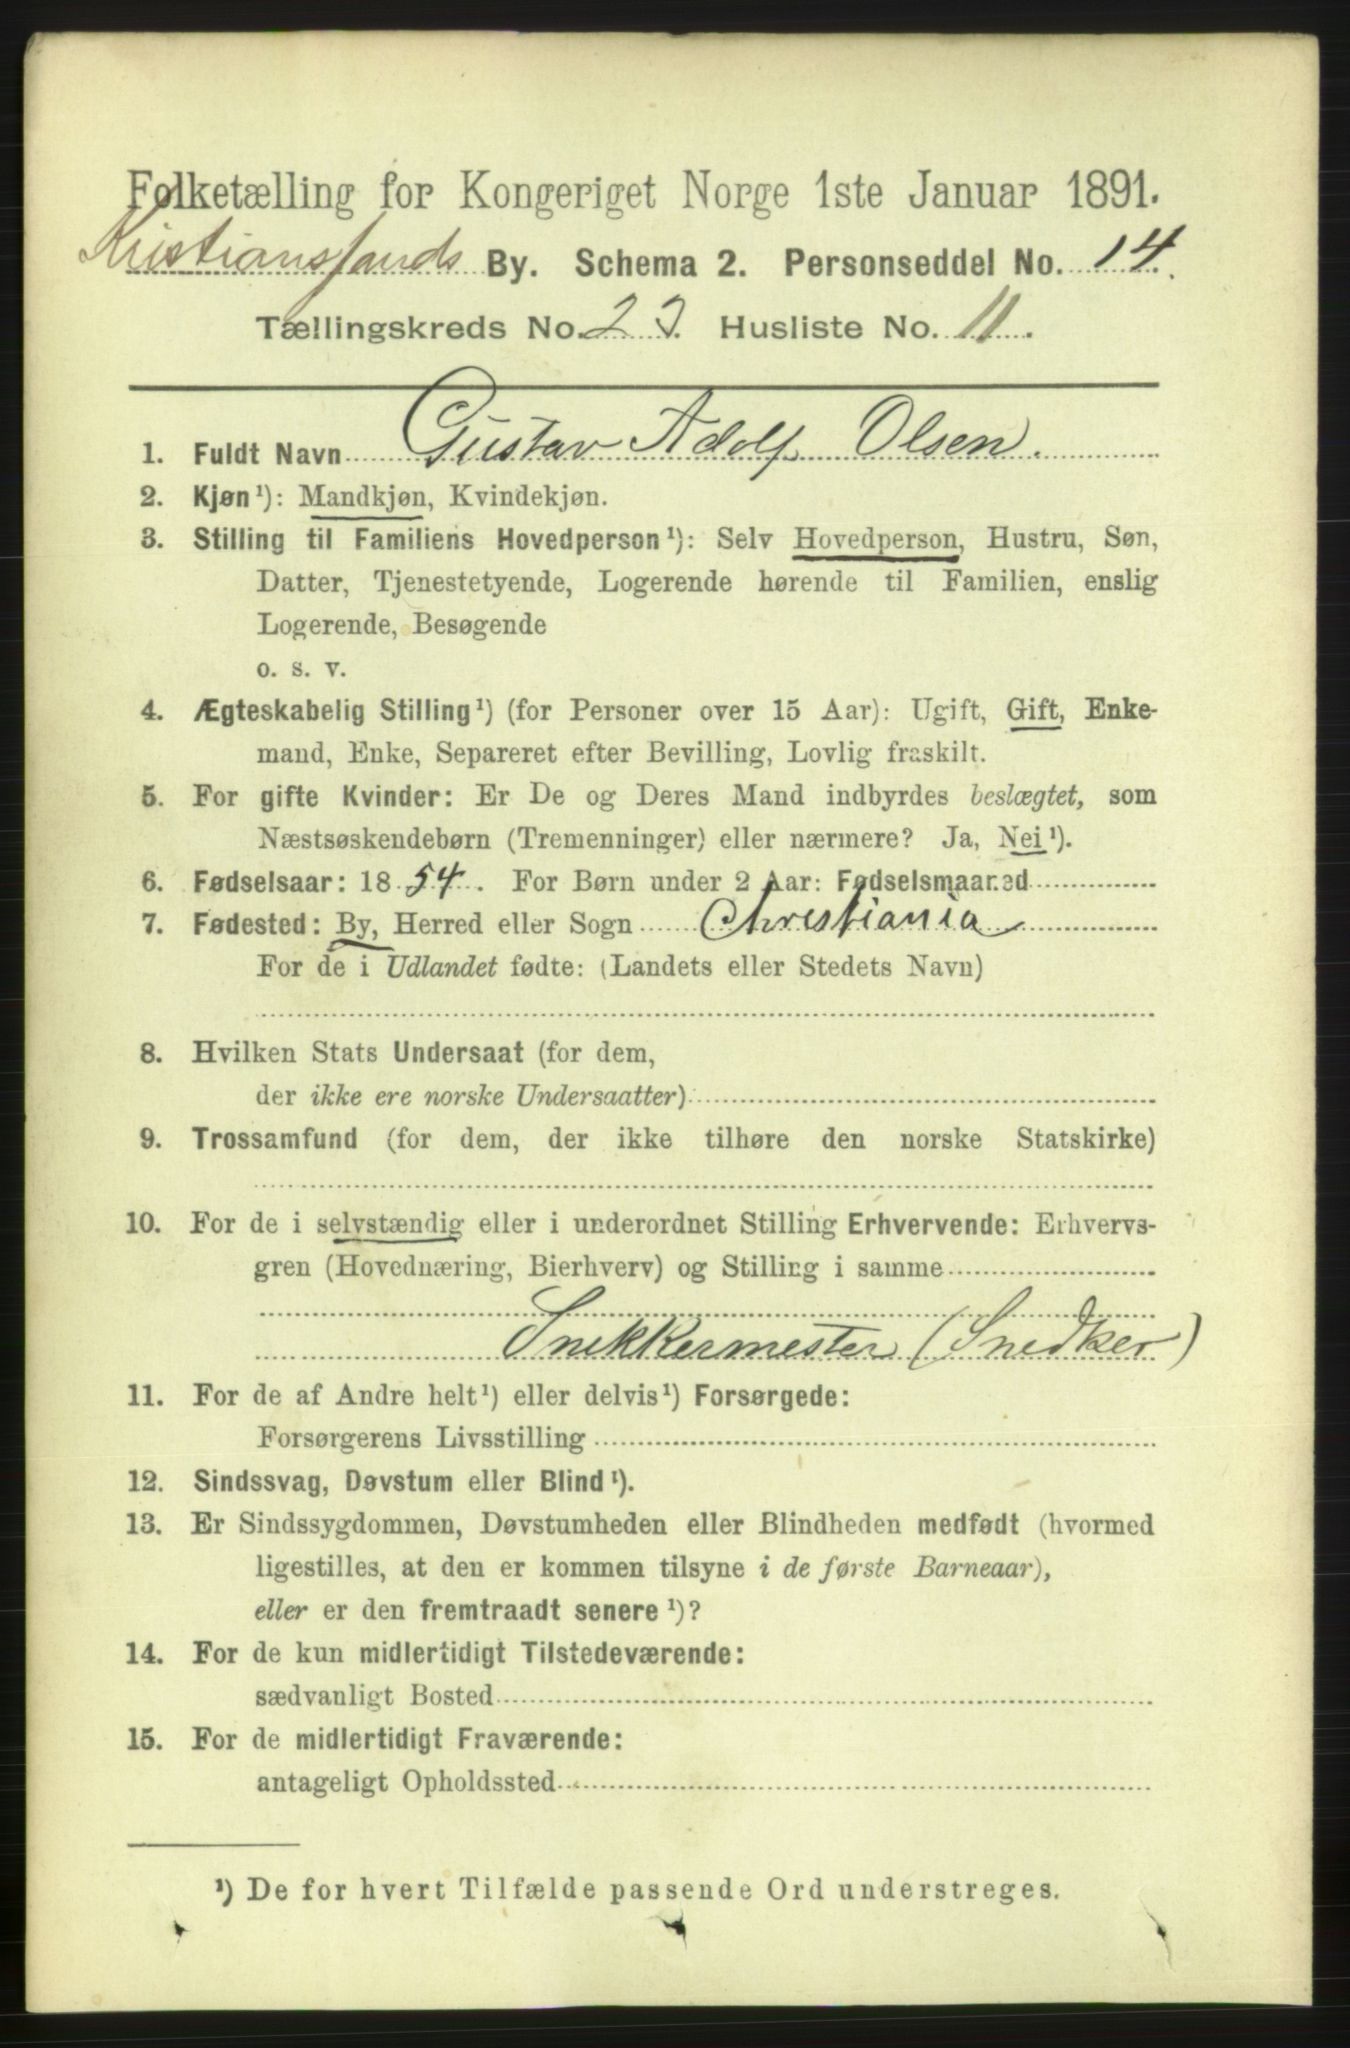 Folketælling for Kongeriget Norge 1ste Januar 1891.
Kristianssands By. Schema 2. Personseddel No. 14.
Tællingskreds No. 23. Husliste No. 11.
1. Fuldt Navn Gustav Adolf Olsen.
2. Kjøn¹): Mandkjøn, Kvindekjøn.
3. Stilling til Familiens Hovedperson¹): Selv Hovedperson, Hustru, Søn,
Datter, Tjenestetyende, Logerende hørende til Familien, enslig
Logerende, Besøgende
o. s. v.
4. Ægteskabelig Stilling¹) (for Personer over 15 Aar): Ugift, Gift, Enke-
mand, Enke, Separeret efter Bevilling, Lovlig fraskilt.
5. For gifte Kvinder: Er De og Deres Mand indbyrdes beslægtet, som
Næstsøskendebørn (Tremenninger) eller nærmere? Ja, Nei¹).
6. Fødselsaar: 1854. For Børn under 2 Aar: Fødselsmaaned
7. Fødested: By, Herred eller Sogn Christiania
For de i Udlandet fødte: (Landets eller Stedets Navn)
8. Hvilken Stats Undersaat (for dem,
der ikke ere norske Undersaatter)
9. Trossamfund (for dem, der ikke tilhøre den norske Statskirke)
10. For de i selvstændig eller i underordnet Stilling Erhvervende: Erhvervs-
gren (Hovednæring, Bierhverv) og Stilling i samme
Snekkermester (Snedker)
11. For de af Andre helt¹) eller delvis¹) Forsørgede:
Forsørgerens Livsstilling
12. Sindssvag, Døvstum eller Blind¹).
13. Er Sindssygdommen, Døvstumheden eller Blindheden medfødt (hvormed
ligestilles, at den er kommen tilsyne i de første Barneaar),
eller er den fremtraadt senere¹)?
14. For de kun midlertidigt Tilstedeværende:
sædvanligt Bosted
15. For de midlertidigt Fraværende:
antageligt Opholdssted
¹) De for hvert Tilfælde passende Ord understreges.